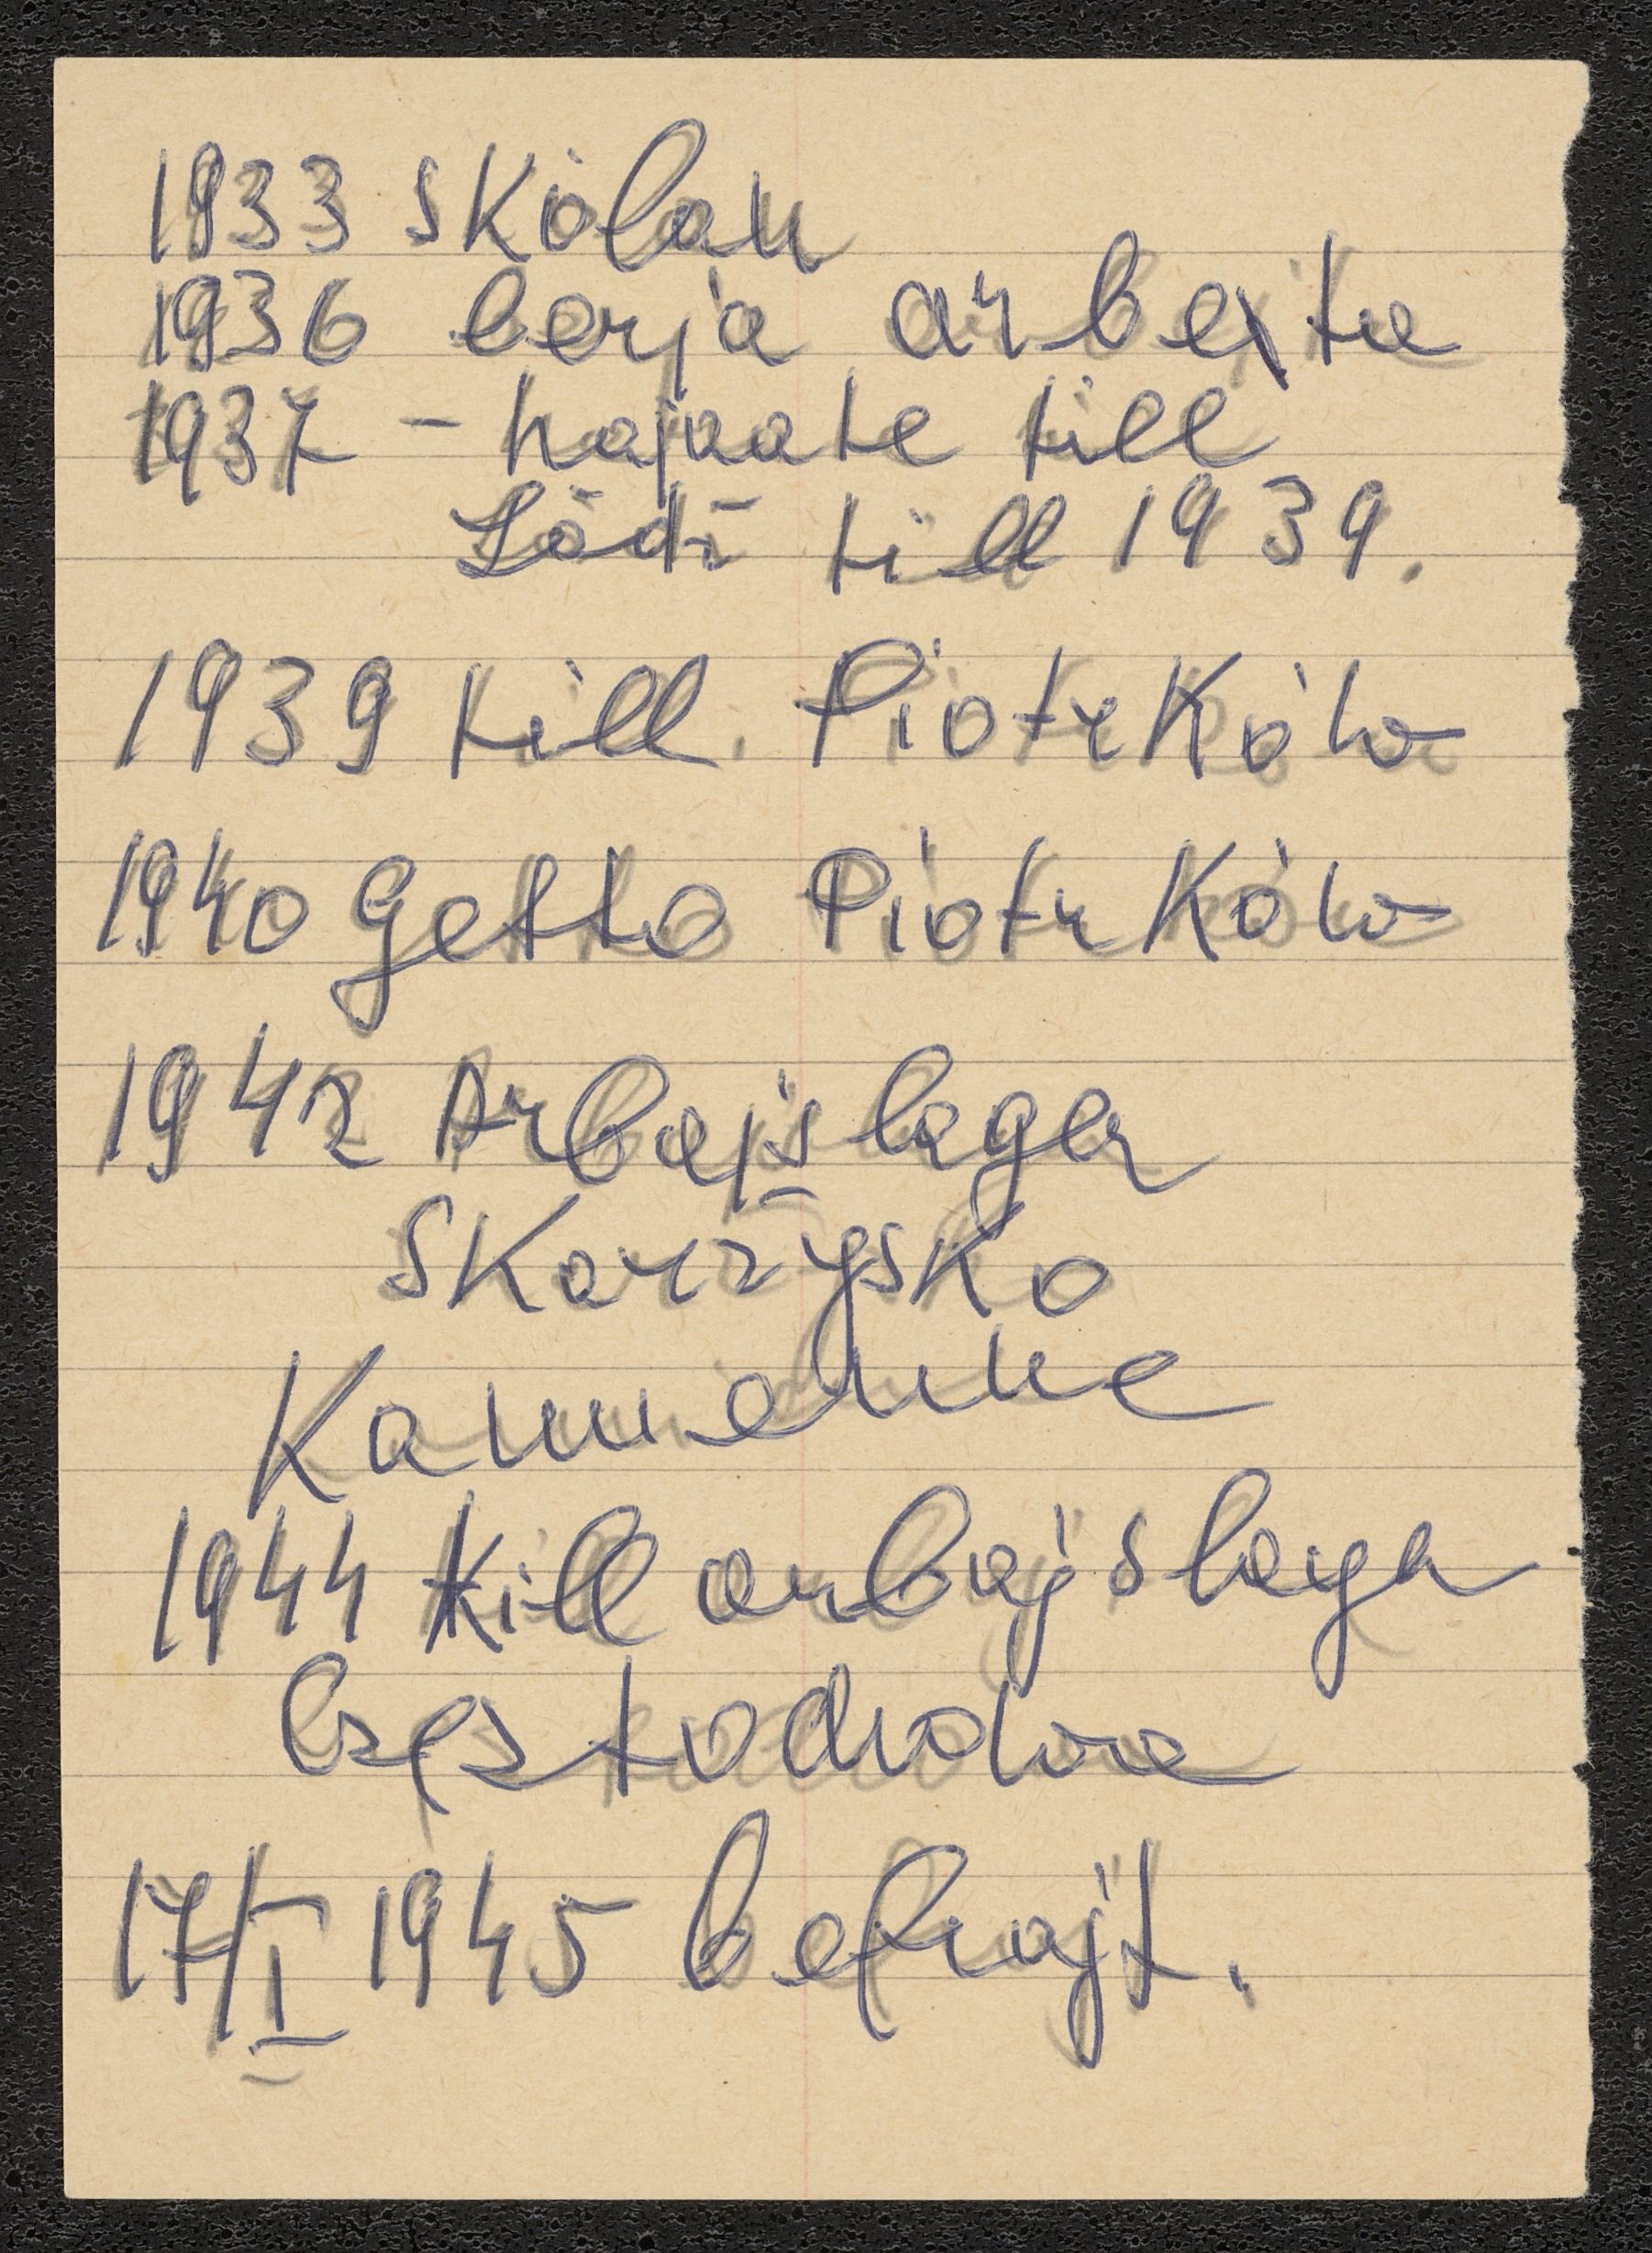 1933 skolan
1936 berja arbejta
1937 - till
Lódź till 1939.
1939 till. Piotrków
1940 Getto Piotrków
1942 Arbejslager
Skarżysko
Kamienne
1944 till arbajslager
Częstochowa
17/I 1945 befrajt.